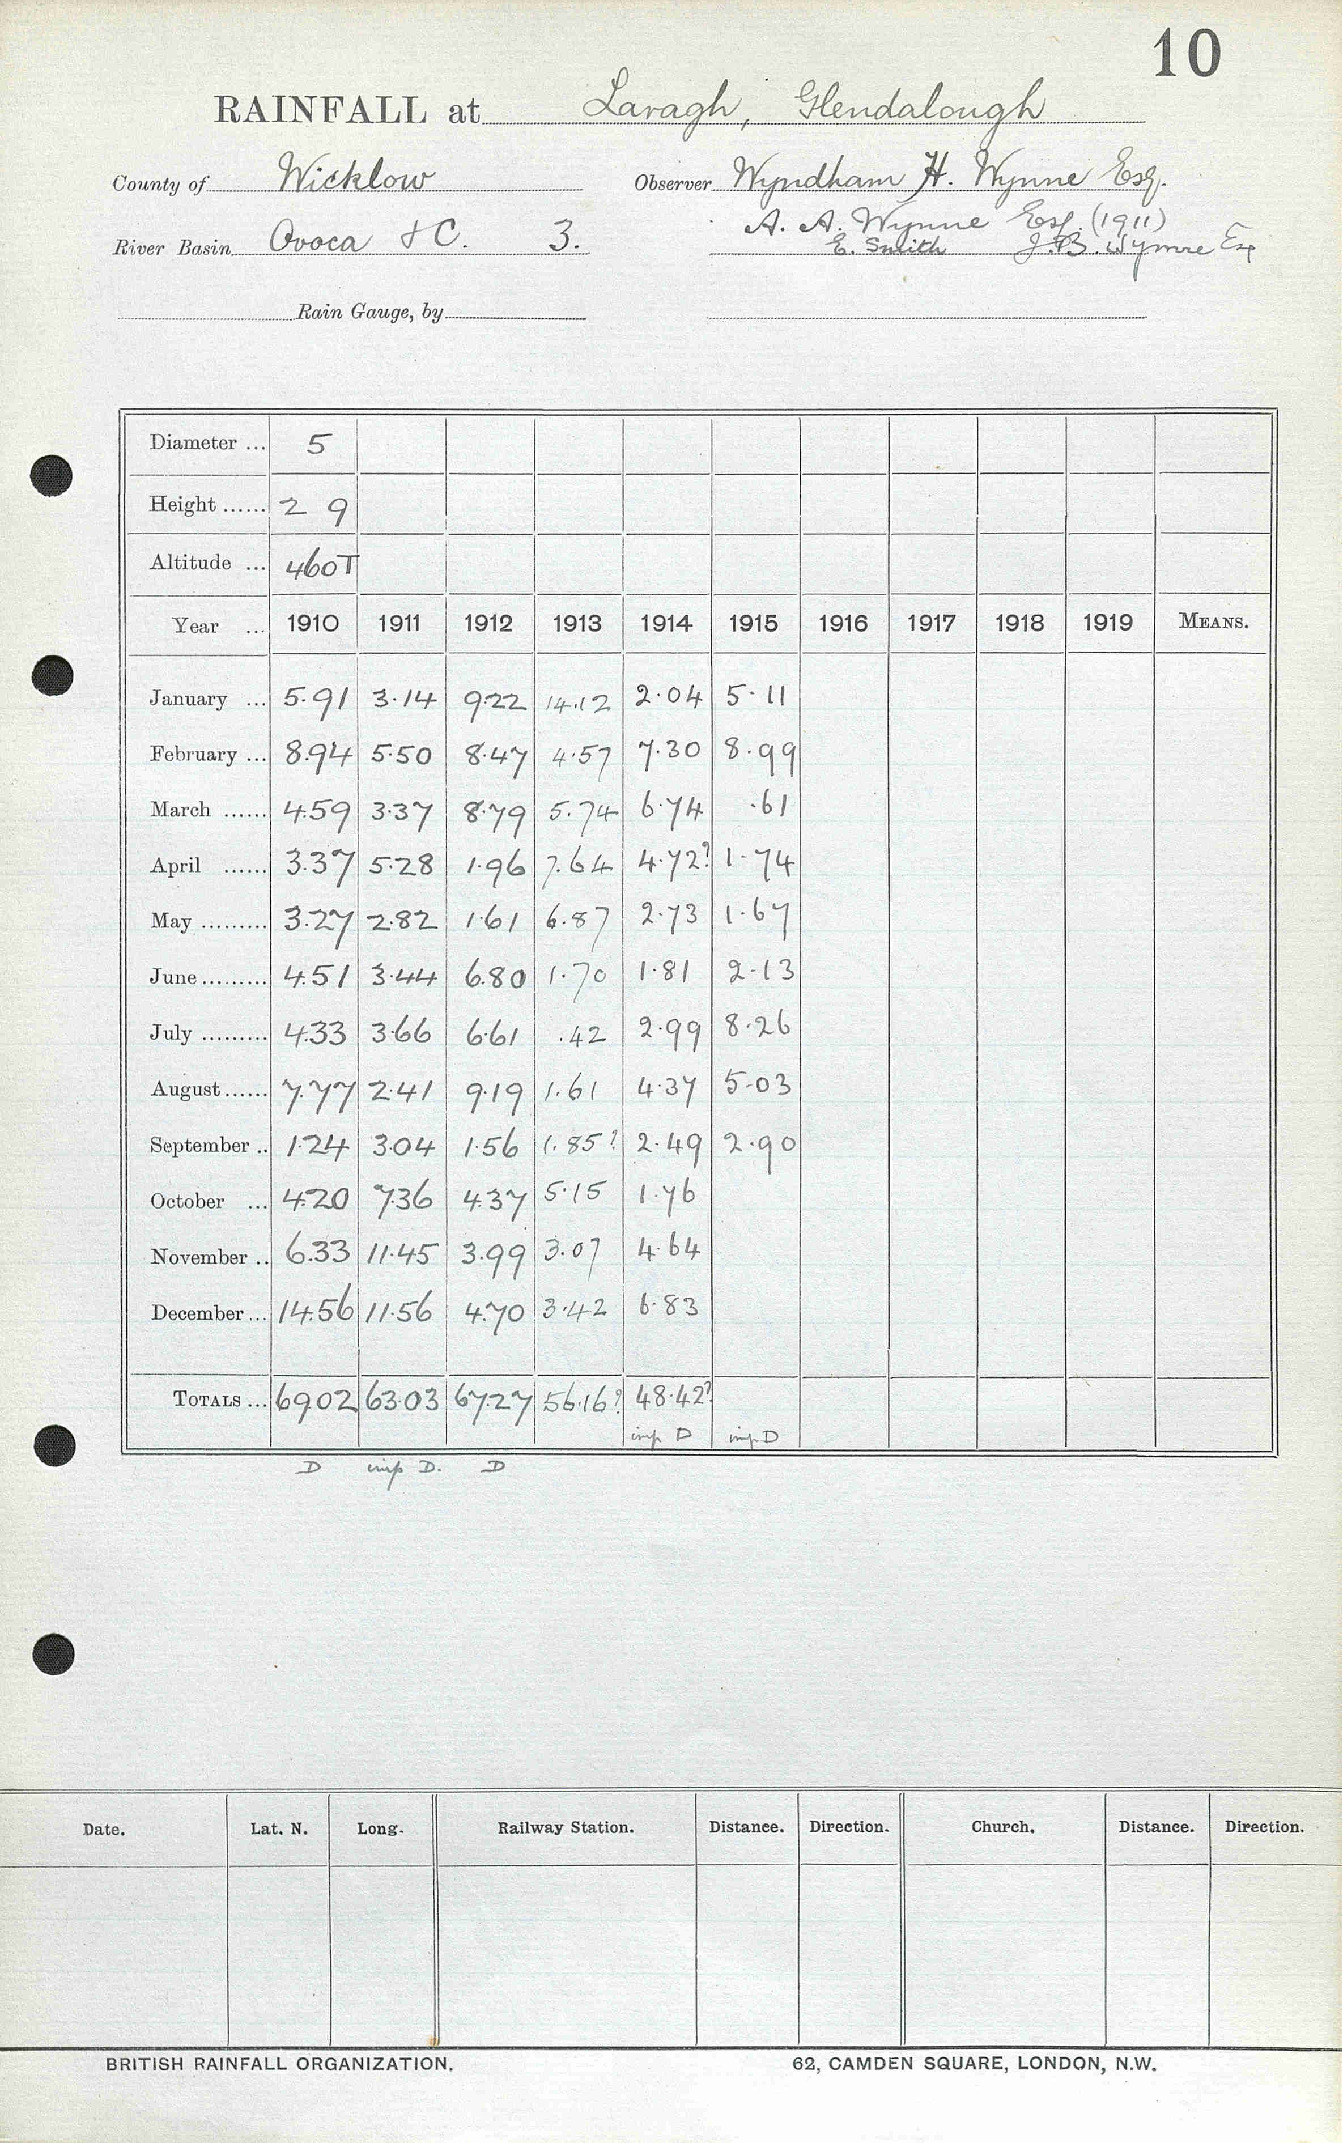 10
RAINFALL at Laragh, Glendalough
County of Wicklow Observer Wyndham H. Wynne Esq.
A. A. Wynne Esq. (1911)
River Basin Ovoca &C. 3. E. Smith J.B. Wynne Esq
Rain Gauge, by
Diameter ... 5
Height ...... 2 9
Altitude ... 460T
Year ... 1910 1911 1912 1913 1914 1915 1916 1917 1918 1919 MEANS.
January ... 5.91 3.14 9.22 14.12 2.04 5.11
February ... 8.94 5.50 8.47 4.57 7.30 8.99
March ...... 4.59 3.37 8.79 5.74 6.74 .61
April ...... 3.37 5.28 1.96 7.64 4.72? 1.74
May ......... 3.27 2.82 1.61 6.87 2.73 1.67
June ......... 4.51 3.44 6.80 1.70 1.81 2.13
July ......... 4.33 3.66 6.61 .42 2.99 8.26
August ...... 7.77 2.41 9.19 1.61 4.37 5.03
September .. 1.24 3.04 1.56 1.85? 2.49 2.90
October ... 4.20 7.36 4.37 5.15 1.76
November .. 6.33 11.45 3.99 3.07 4.64
December ... 14.56 11.56 4.70 3.42 6.83
TOTALS ... 69.02 63.03 67.27 56.16? 48.42?
imp D imp D
D imp D. D
Date. Lat. N. Long. Railway Station. Distance. Direction. Church. Distance. Direction.
BRITISH RAINFALL ORGANIZATION. 62, CAMDEN SQUARE, LONDON, N.W.